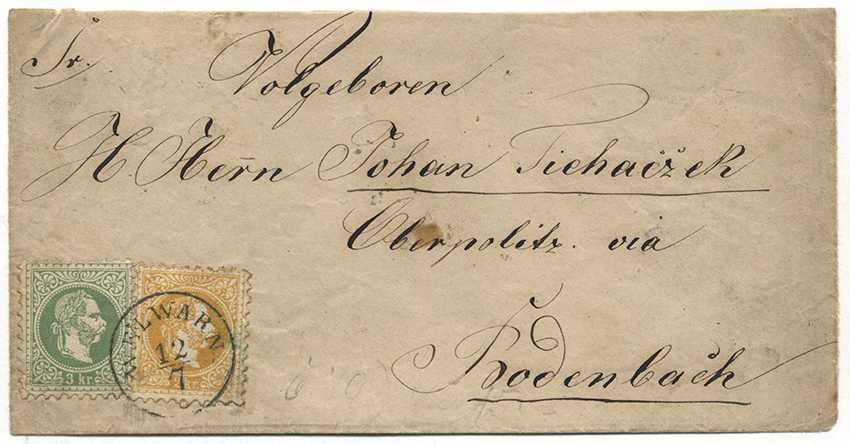 Sr. Volgeboren
H. Herrn Johan Tichaczek
Oberpolitz. via
Bodenbach
3 kr.
WELWARN
12
7